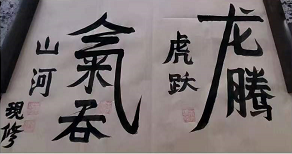 龙腾
虎跃
氣吞
山河